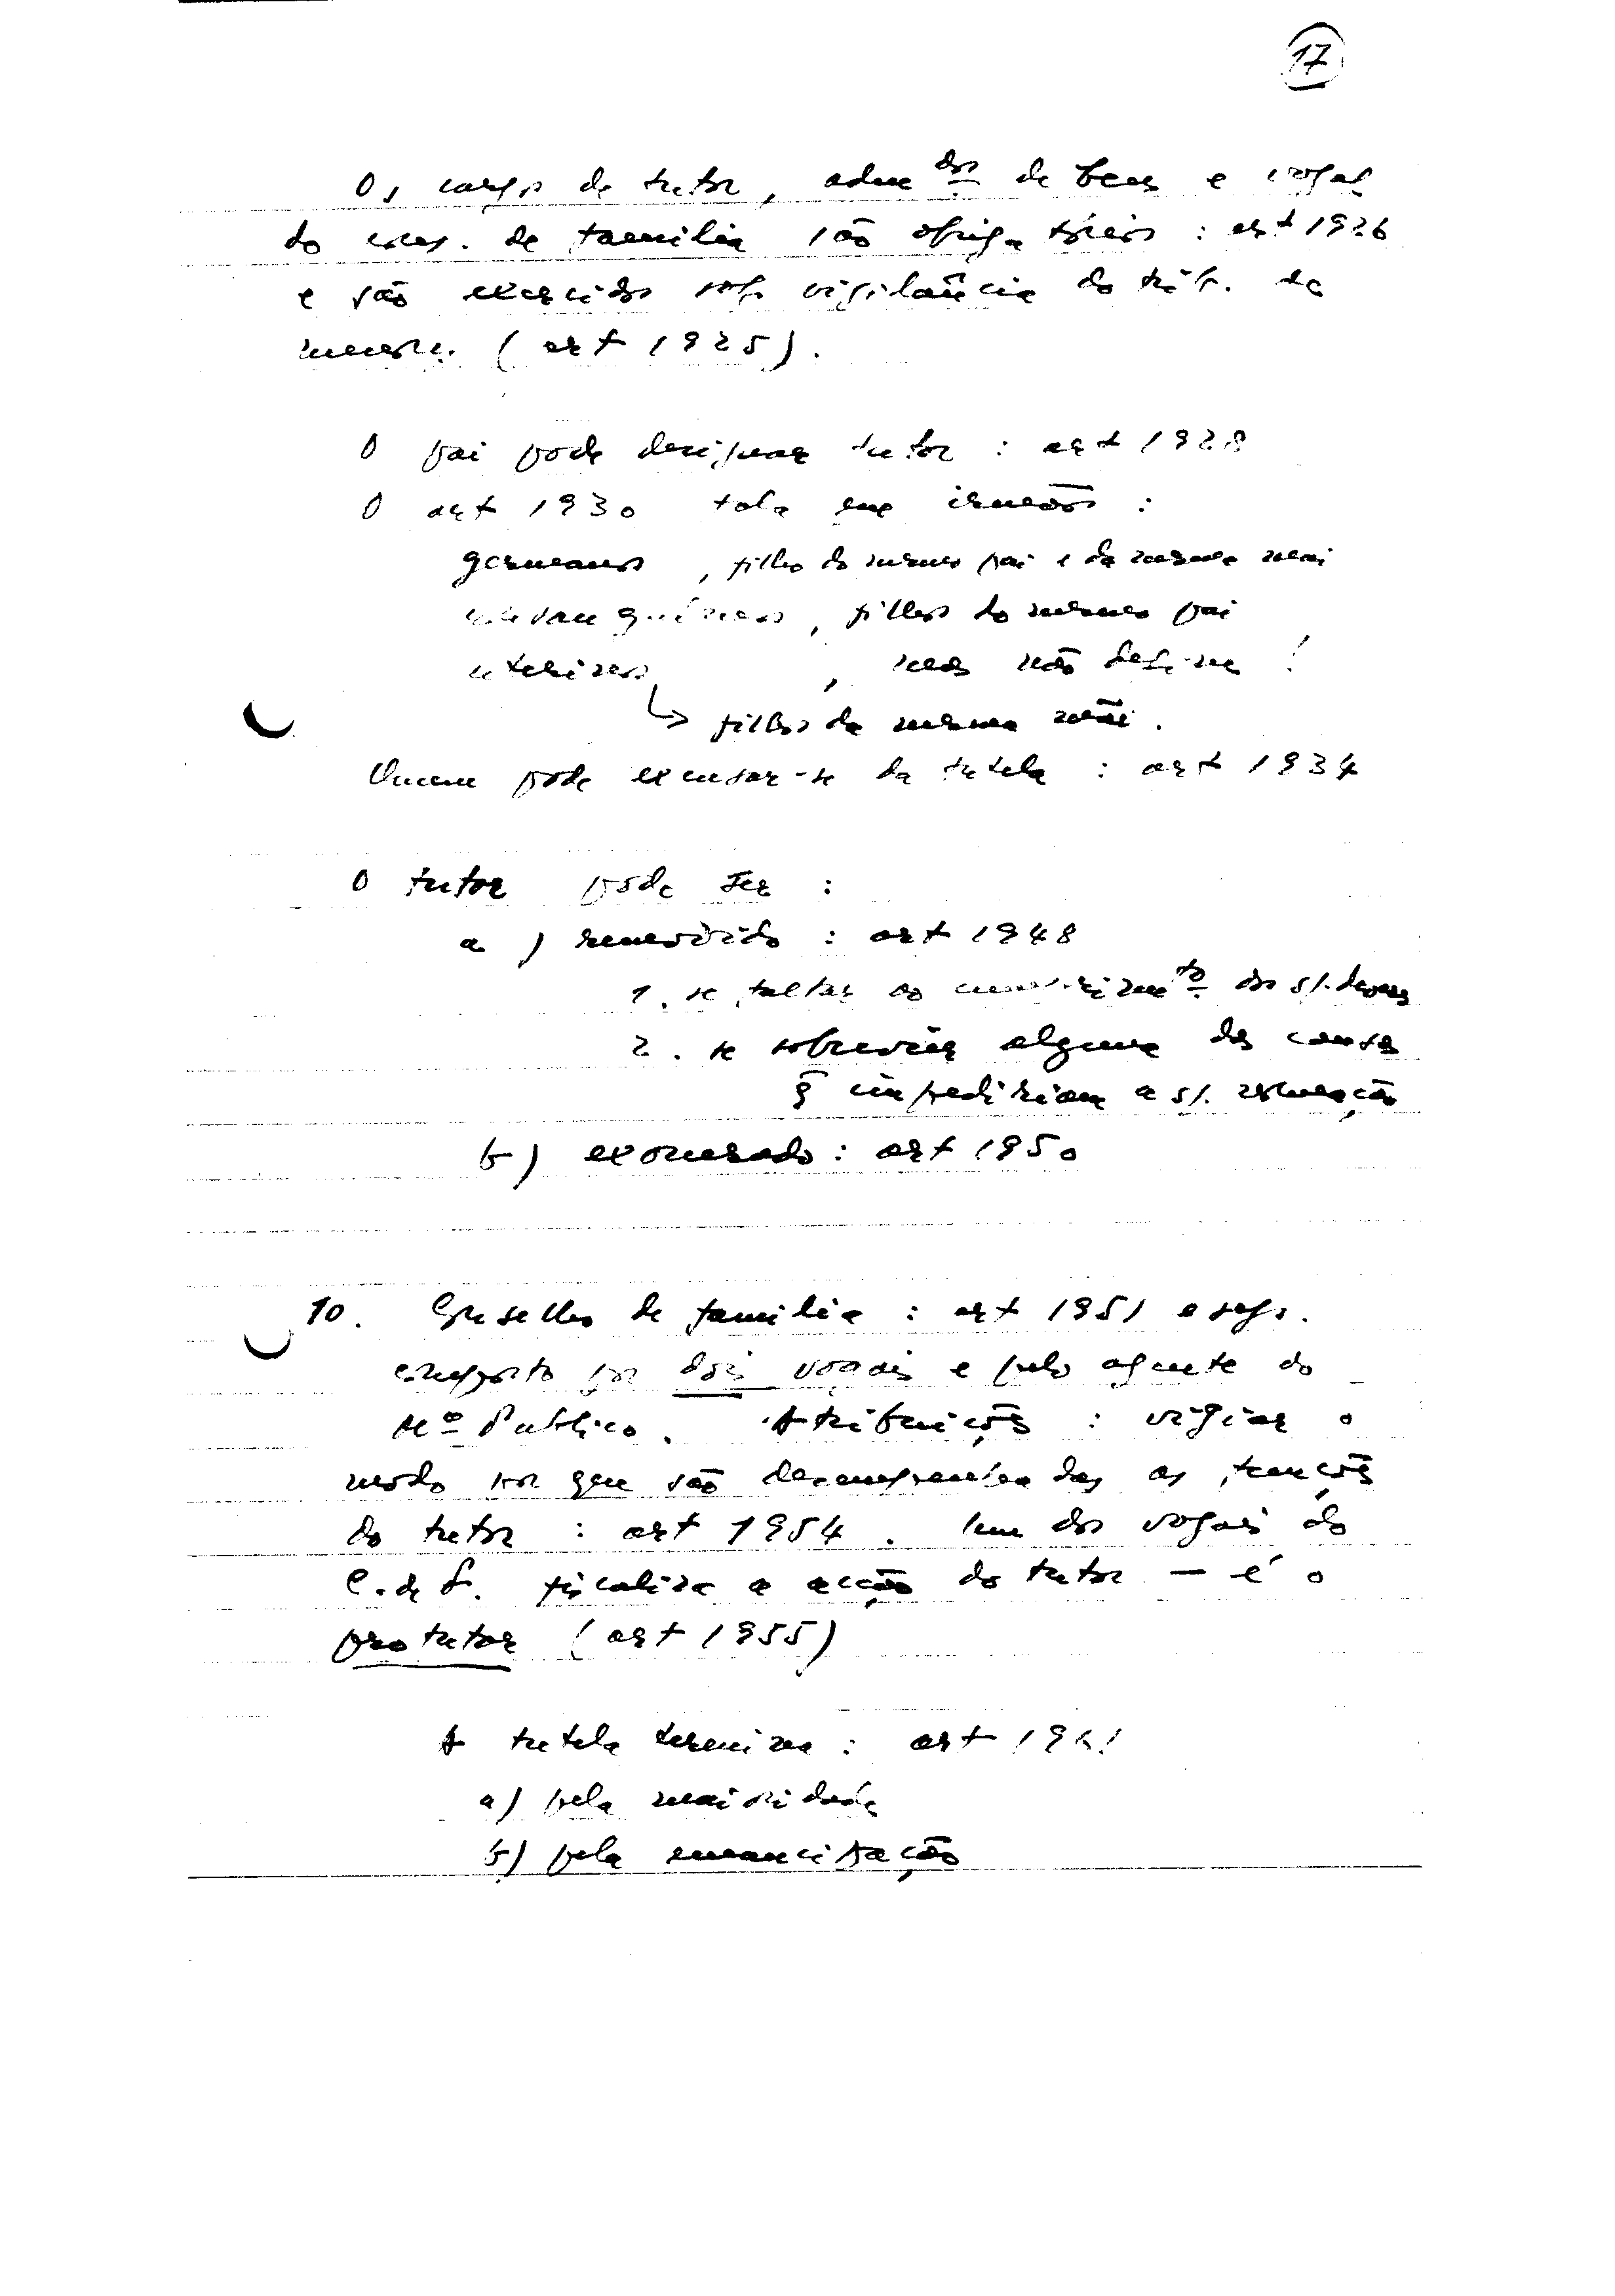 17
Os cargos de tutor, adm dos de bens e vogal
do cons. de família são obrigatórios : art 1926
e são exercidos sob vigilância do trib. de
menores (art 1925).
O pai pode designar tutor : art 1928
O art 1930 fala em irmãos :
germanos , filhos do mesmo pai e da mesma mãi
consanguíneos , filhos do mesmo pai
uterinos , mas não define !
↳ filhos da mesma mãi .
Quem pode excusar-se da tutela : art 1934
O tutor pode ser :
a ) removido : art 1948
1. se faltar ao cumprimto dos s/. deveres
2. se sobrevier alguma das causas
q̄ impediriam a s/. nomeação
b ) exonerado : art 1950
10. Conselho de família : art 1951 e segs.
composto por dois vogais e pelo agente do
Mº Publico. Atribuições : vigiar o
modo por que são desempenhadas as funções
do tutor : art 1954 . Um dos vogais do
C. de f. fiscaliza a acção do tutor — é o
protutor (art 1955)
A tutela termina : art 1961
a) pela maioridade
b) pela emancipação